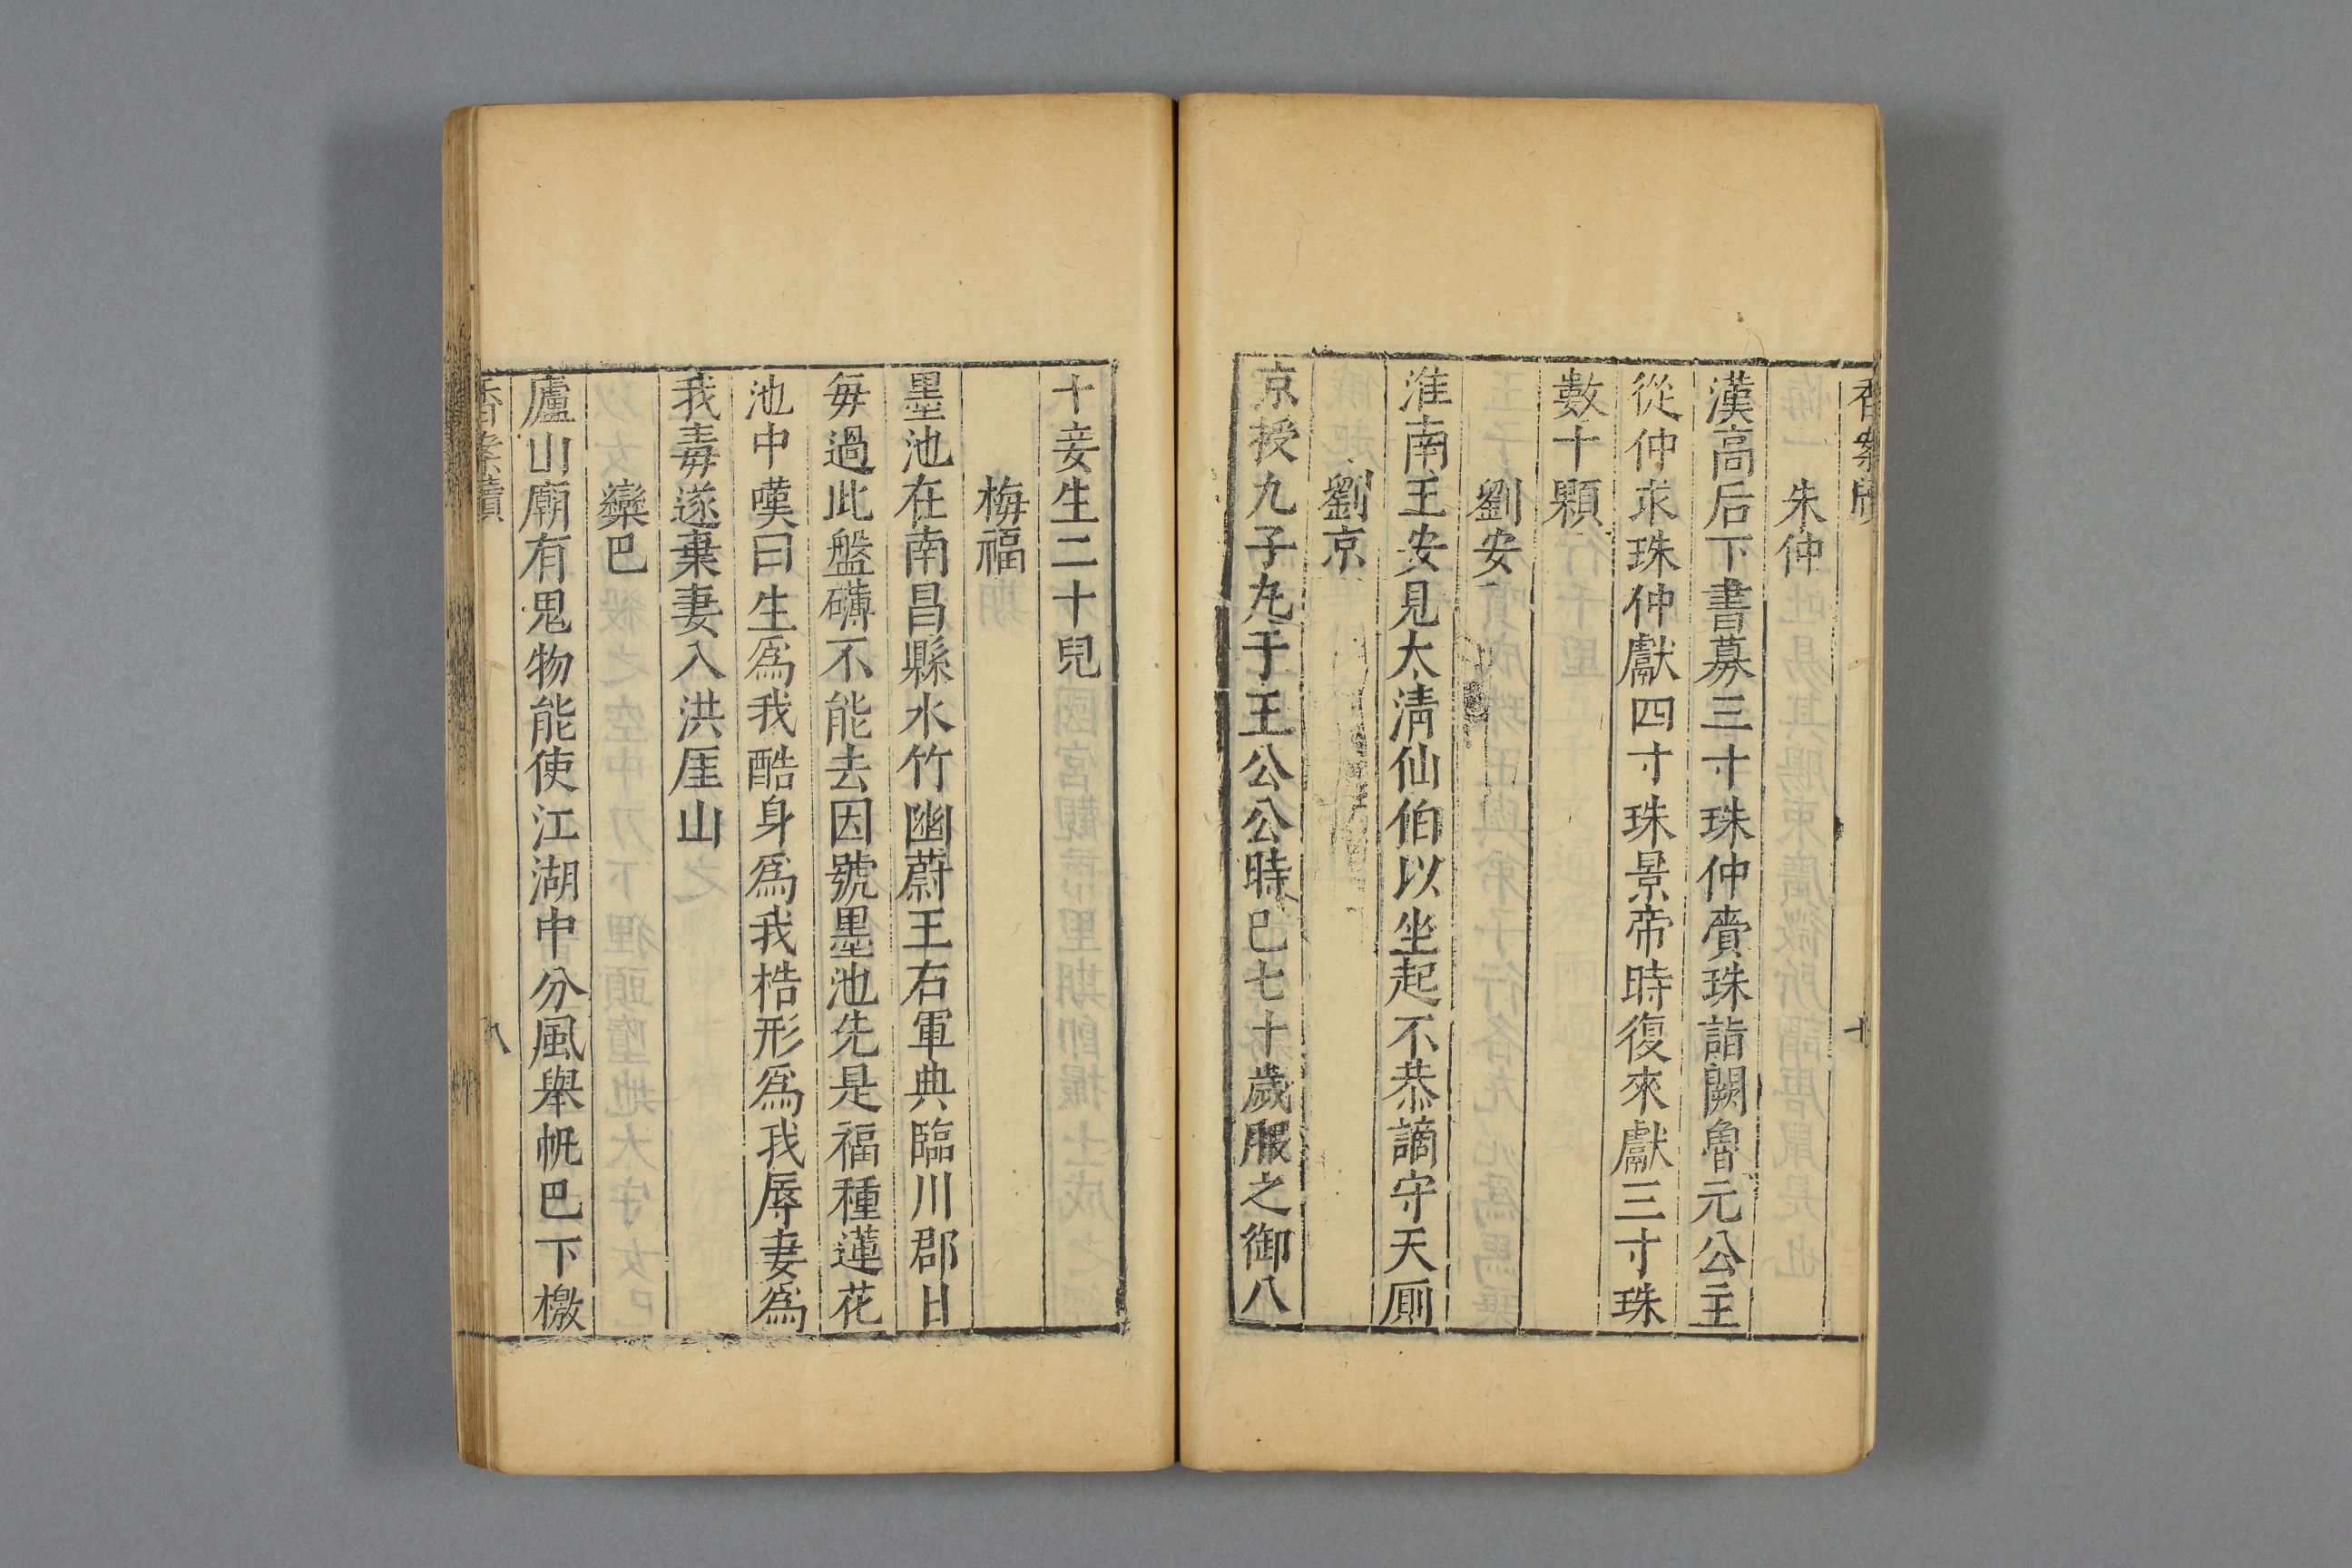 朱仲
漢高后下書募三寸珠仲賷珠詣闕魯元公主
從仲求珠仲獻四寸珠景帝時復來獻三寸珠
數十顆
劉安
淮南王安見太清仙伯以坐起不恭謫守天厠
劉京
京授九子丸于王公公時已七十歲服之御八
十妾生二十兒
梅福
墨池在南昌縣水竹幽蔚王右軍典臨川郡日
每過此盤礴不能去因號墨池先是福種蓮花
池中嘆曰生爲我酷身爲我梏形爲我辱妻爲
我毒遂棄妻入洪厓山
欒巴
廬山廟有鬼物能使江湖中分風舉帆巴下檄
香案牘
八